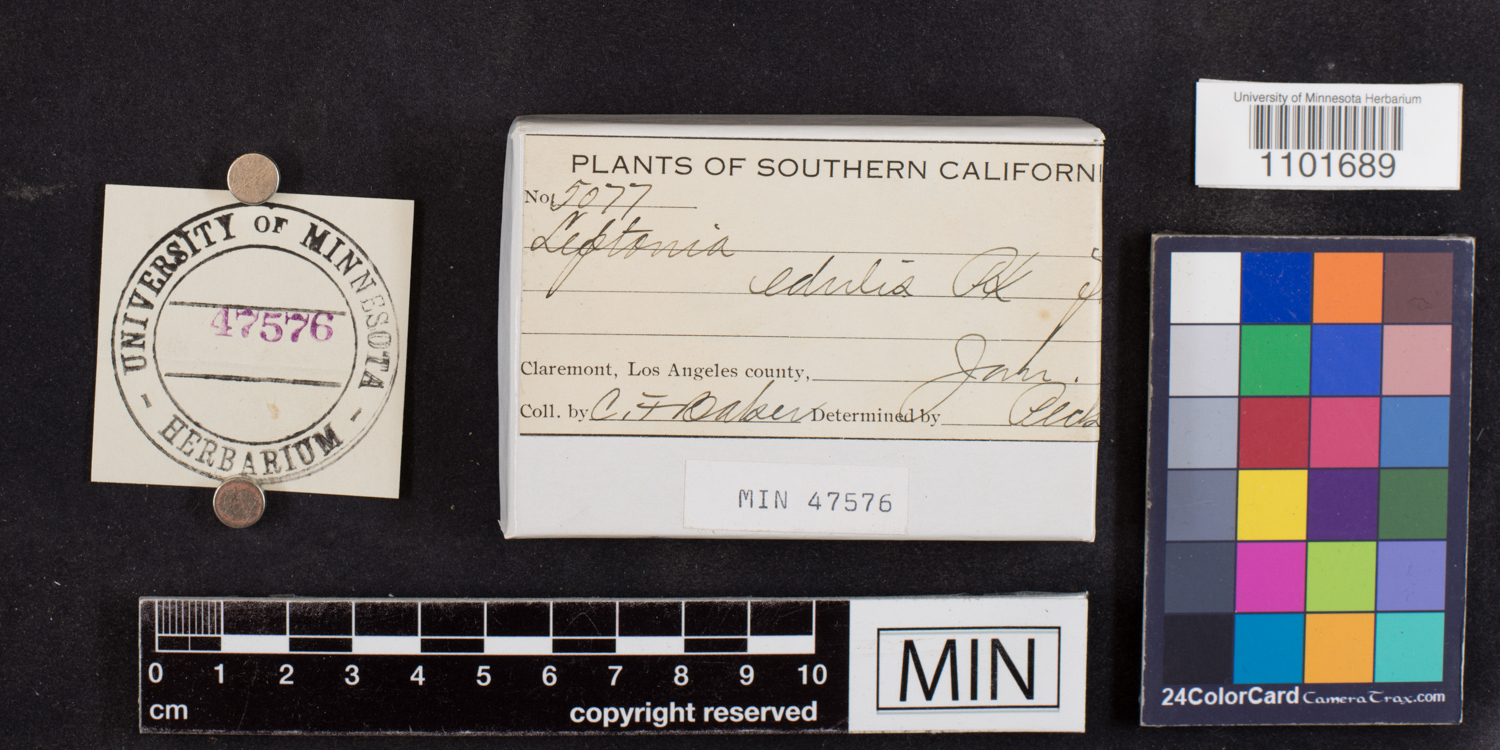 UNIVERSITY OF MINNESOTA
47576
- HERBARIUM -
PLANTS OF SOUTHERN CALIFORNI
No. 5077
Leptonia
edulis Pk
Claremont, Los Angeles county, Jan.
Coll. by C. F. Baker Determined by Peck
MIN 47576
University of Minnesota Herbarium
1101689
24ColorCard CameraTrax.com
0 1 2 3 4 5 6 7 8 9 10
cm
copyright reserved
MIN